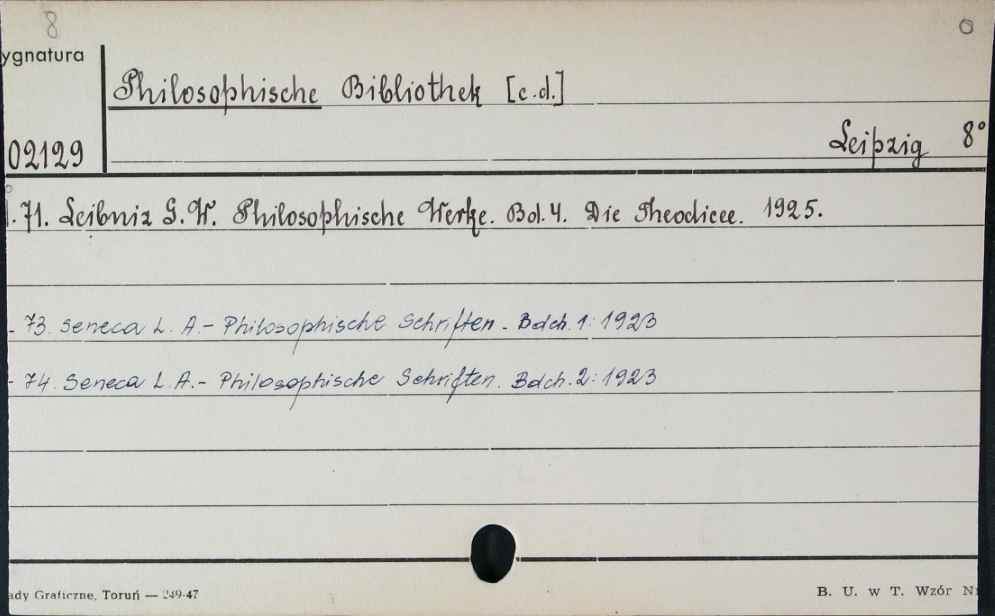 8
ygnatura
Philosophische Bibliothek [c.d.]
02129
Leipzig 8°
.71. Leibniz G.W. Philosophische Werke. Bd. 4. Die Theodicee. 1925.
- 73. Seneca L. A. - Philosophische Schriften - Bdch. 1: 1923
- 74. Seneca L. A. - Philosophische Schriften. Bdch. 2: 1923
ady Graficzne, Toruń — 249-47
B. U. w T. Wzór N